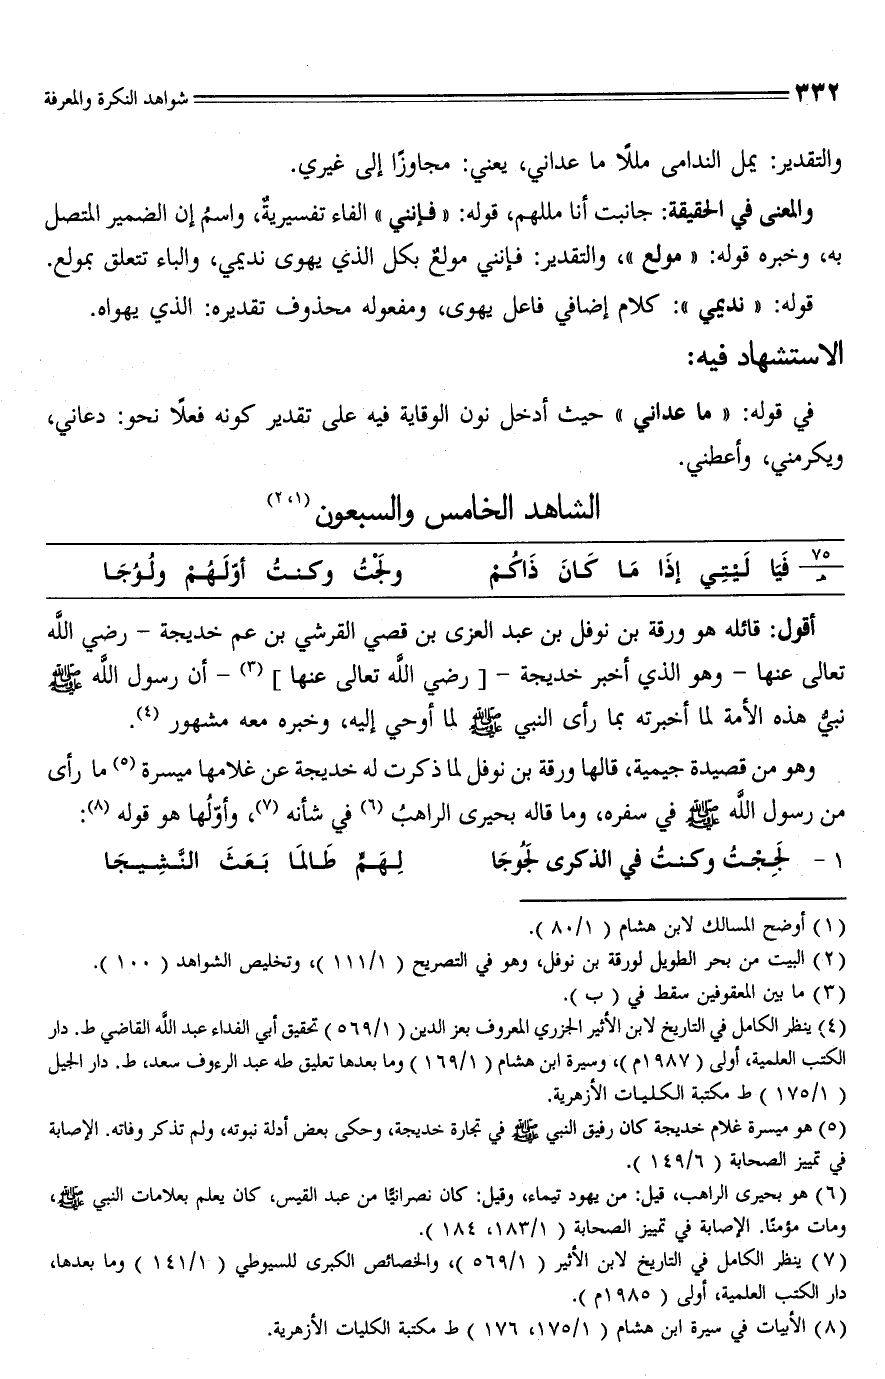 ٣٣٢ شواهد النكرة والمعرفة
والتقدير: يمل الندامى مللًا ما عداني، يعني: مجاوزًا إلى غيري.
والمعنى في الحقيقة: جانبت أنا مللهم، قوله: « فـإنني » الفاء تفسيريةٌ، واسمُ إن الضمير المتصل
به، وخبره قوله: « مولع »، والتقدير: فـإنني مولعٌ بكل الذي يهوى نديمي، والباء تتعلق بمولع.
قوله: « نديمي »: كلام إضافي فاعل يهوى، ومفعوله محذوف تقديره: الذي يهواه.
الاستشهاد فيه:
في قوله: « ما عداني » حيث أدخل نون الوقاية فيه على تقدير كونه فعلًا نحو: دعاني،
ويكرمني، وأعطني.
الشاهد الخامس والسبعون (١، ٢)
٧٥/هـ فَيَا لَيْتِي إِذَا مَا كَانَ ذَاكُمْ ولَجْتُ وكنتُ أوّلَهُمْ ولُوُجَا
أقول: قائله هو ورقة بن نوفل بن عبد العزى بن قصي القرشي بن عم خديجة - رضي اللَّه
تعالى عنها - وهو الذي أخبر خديجة - [ رضي اللَّه تعالى عنها ] (٣) - أن رسول اللَّه ﷺ
نبيُّ هذه الأمة لما أخبرته بما رأى النبي ﷺ لما أوحي إليه، وخبره معه مشهور (٤).
وهو من قصيدة جيمية، قالها ورقة بن نوفل لما ذكرت له خديجة عن غلامها ميسرة (٥) ما رأى
من رسول اللَّه ﷺ في سفره، وما قاله بحيرى الراهبُ (٦) في شأنه (٧)، وأوّلُها هو قوله (٨):
١ - لَجِجْتُ وكنتُ في الذكرى لَجُوجَا لِهَمٍّ طَالَمَا بَعَثَ النَّشِيجَا
(١) أوضح المسالك لابن هشام ( ٨٠/١ ).
(٢) البيت من بحر الطويل لورقة بن نوفل، وهو في التصريح ( ١١١/١ )، وتخليص الشواهد ( ١٠٠ ).
(٣) ما بين المعقوفين سقط في ( ب ).
(٤) ينظر الكامل في التاريخ لابن الأثير الجزري المعروف بعز الدين ( ٥٦٩/١ ) تحقيق أبي الفداء عبد اللَّه القاضي ط. دار
الكتب العلمية، أولى ( ١٩٨٧م )، وسيرة ابن هشام ( ١٦٩/١ ) وما بعدها تعليق طه عبد الرءوف سعد، ط. دار الجيل
( ١٧٥/١ ) ط مكتبة الكليات الأزهرية.
(٥) هو ميسرة غلام خديجة كان رفيق النبي ﷺ في تجارة خديجة، وحكى بعض أدلة نبوته، ولم تذكر وفاته. الإصابة
في تمييز الصحابة ( ١٤٩/٦ ).
(٦) هو بحيرى الراهب، قيل: من يهود تيماء، وقيل: كان نصرانيًّا من عبد القيس، كان يعلم بعلامات النبي ﷺ،
ومات مؤمنًا. الإصابة في تمييز الصحابة ( ١٨٣/١، ١٨٤ ).
(٧) ينظر الكامل في التاريخ لابن الأثير ( ٥٦٩/١ )، والخصائص الكبرى للسيوطي ( ١٤١/١ ) وما بعدها،
دار الكتب العلمية، أولى ( ١٩٨٥م ).
(٨) الأبيات في سيرة ابن هشام ( ١٧٥/١، ١٧٦ ) ط مكتبة الكليات الأزهرية.